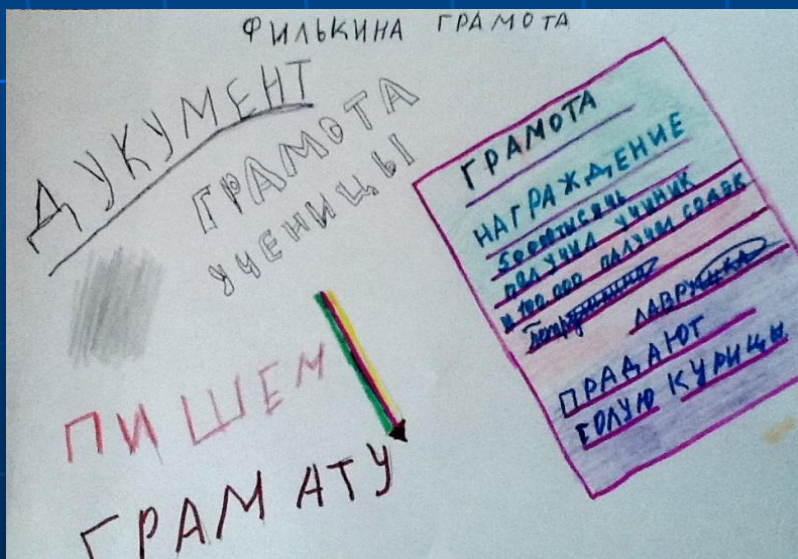 ФИЛЬКИНА ГРАМОТА
ДУКУМЕНТ
ГРАМОТА
УЧЕНИЦЫ
ПИШЕМ
ГРАМАТУ
ГРАМОТА
НАГРАЖДЕНИЕ
ПАЛУЧИЛ УЧИНИК
И 100.000 ПАЛУЧИЛ
ЛАВРУШКА
ПРАДАЮТ
ГОЛУЮ КУРИЦЫ